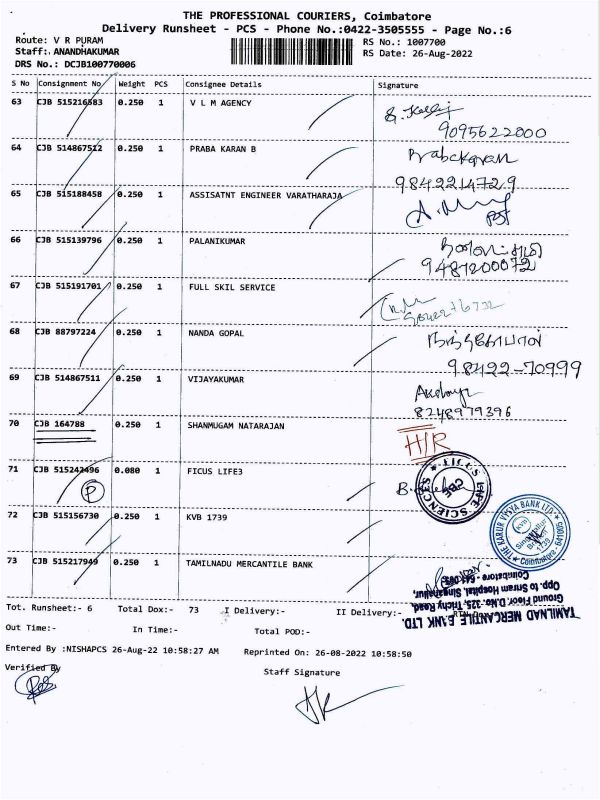 THE PROFESSIONAL COURIERS, Coimbatore
Delivery Runsheet - PCS - Phone No.:0422-3505555 - Page No.:6
Route: V R PURAM
RS No.: 1007700
Staff: ANANDHAKUMAR
RS Date: 26-Aug-2022
DRS No.: DCJB100770006
S No Consignment No Weight PCS Consignee Details Signature
63 CJB 515216583 0.250 1 V L M AGENCY
9095622000
64 CJB 514867512 0.250 1 PRABA KARAN B Prabakaran
9842214729
65 CJB 515188458 0.250 1 ASSISATNT ENGINEER VARATHARAJA
66 CJB 515139796 0.250 1 PALANIKUMAR
9481200072
67 CJB 515191701 0.250 1 FULL SKIL SERVICE
68 CJB 88797224 0.250 1 NANDA GOPAL நந்தகோபால்
98422-70999
69 CJB 514867511 0.250 1 VIJAYAKUMAR
8248979396
70 CJB 164788 0.250 1 SHANMUGAM NATARAJAN H/R
71 CJB 515242496 0.080 1 FICUS LIFE3
P
LIFE SCIENCES
72 CJB 515156730 0.250 1 KVB 1739
THE KARUR VYSYA BANK LTD
Coimbatore - 641005
73 CJB 515217949 0.250 1 TAMILNADU MERCANTILE BANK
TAMILNAD MERCANTILE BANK LTD.
Ground Floor, D.No. 325, Trichy Road,
Opp. to Sriram Hospital, Singanallur,
Coimbatore - 641 005
Tot. Runsheet:- 6 Total Dox:- 73 I Delivery:- II Delivery:-
Out Time:- In Time:- Total POD:-
Entered By :NISHAPCS 26-Aug-22 10:58:27 AM Reprinted On: 26-08-2022 10:58:50
Verified By
Staff Signature